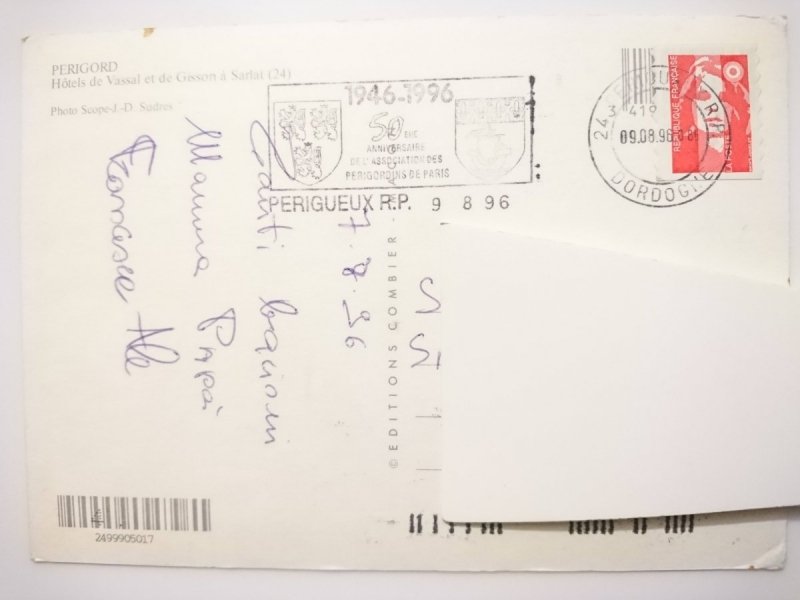 PERIGORD
Hôtels de Vassal et de Gisson à Sarlat (24)
Photo Scope-J.-D. Sudres
1946-1996
50 ÈME
ANNIVERSAIRE
DE L'ASSOCIATION DES
PERIGORDINS DE PARIS
PERIGUEUX R.P. 9 8 96
24
R.P.
09.08.96
DORDOGNE
REPUBLIQUE FRANÇAISE
LA POSTE
7.8.96
bacioni
Mamma Papà
© EDITIONS COMBIER
2499905017